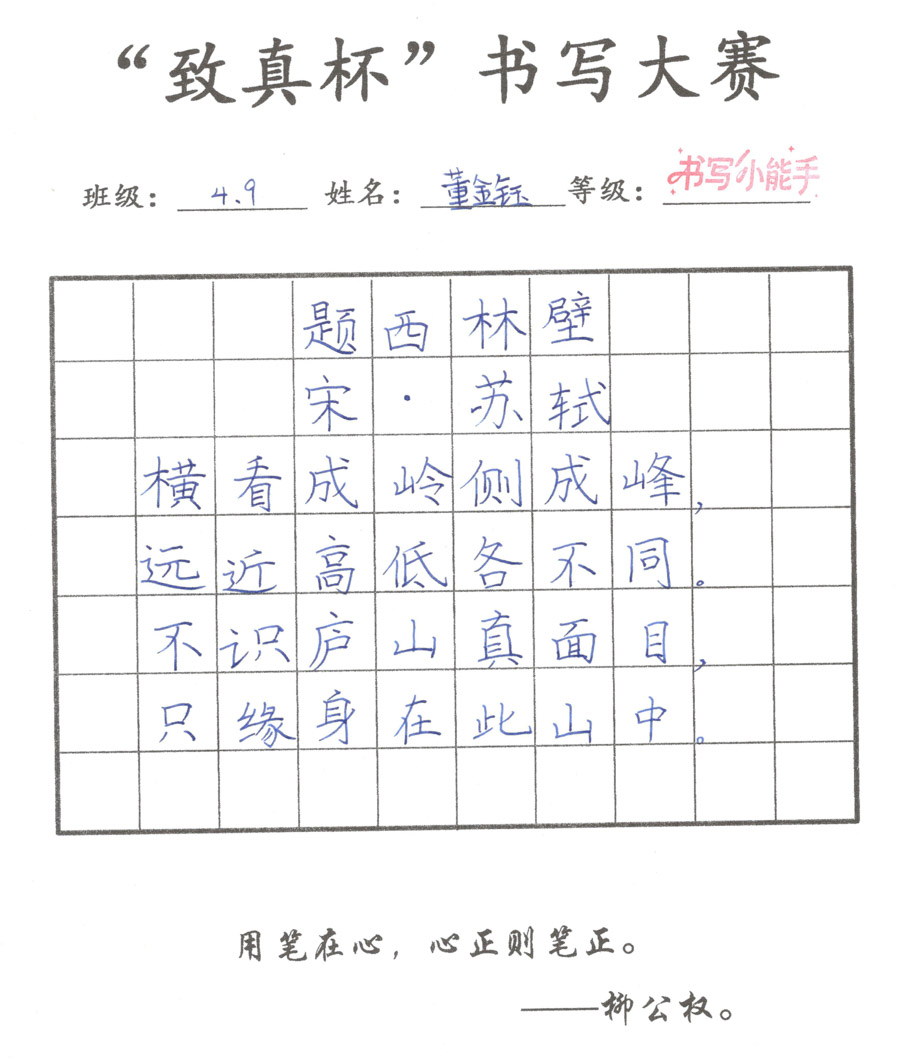 “致真杯”书写大赛
班级：4.9 姓名：董金钰 等级：书写小能手
题西林壁
宋·苏轼
横看成岭侧成峰，
远近高低各不同。
不识庐山真面目，
只缘身在此山中。
用笔在心，心正则笔正。
——柳公权。